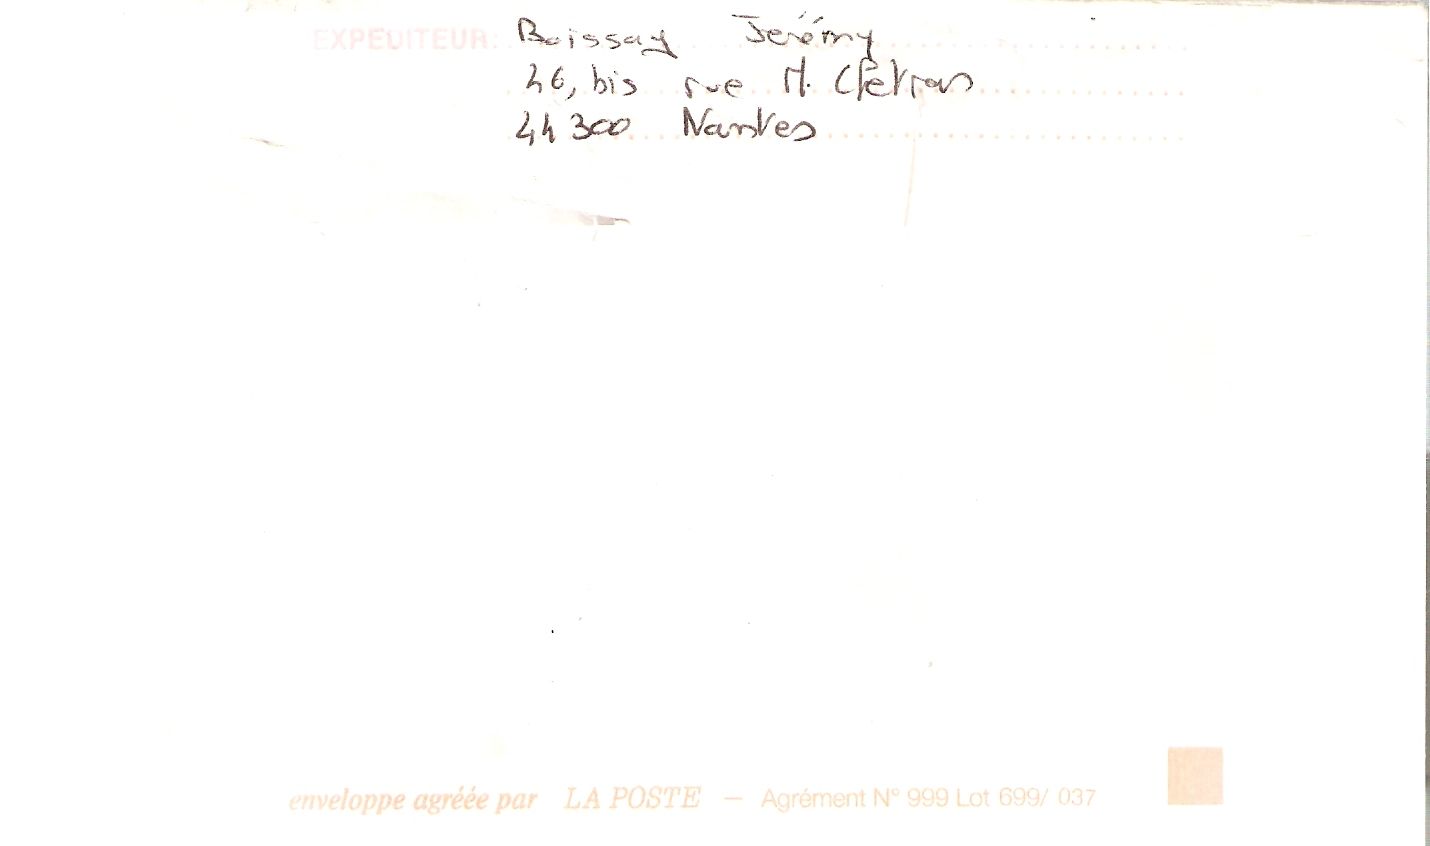 EXPEDITEUR: Boissay Jerémy
bis rue M.
44 300 Nantes
enveloppe agréée par LA POSTE — Agrément N° 999 Lot 699/ 037